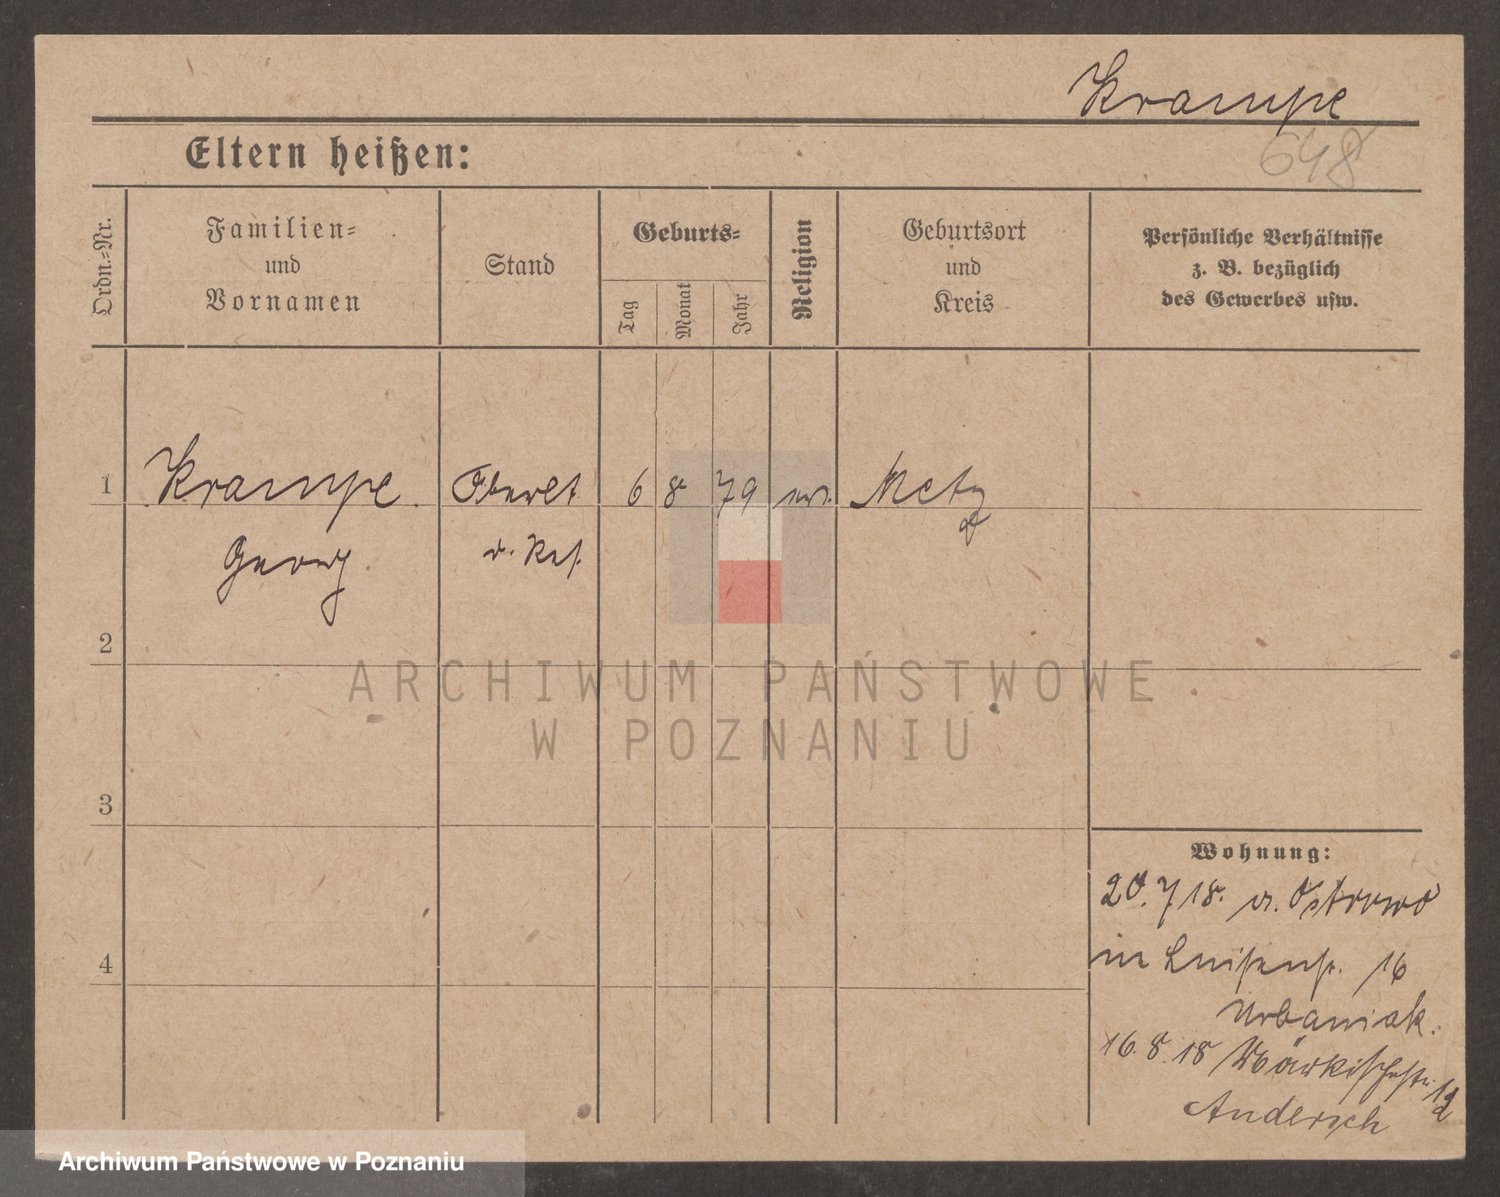 Krampe
648
Eltern heißen:
Ordn.-Nr.
Familien-
und
Vornamen
Stand
Geburts-
Tag
Monat
Jahr
Religion
Geburtsort
und
Kreis
Persönliche Verhältnisse
z. B. bezüglich
des Gewerbes usw.
1 Krampe Oberlt. 6 8 79 ev. Metz
Georg d. Res.
2
3
4
ARCHIWUM PAŃSTWOWE
W POZNANIU
Wohnung:
20.7.18. v. Ostrowo
in Luisenstr. 16
Urbaniak.
16.8.18 Märkischestr. 12
Andersch
Archiwum Państwowe w Poznaniu